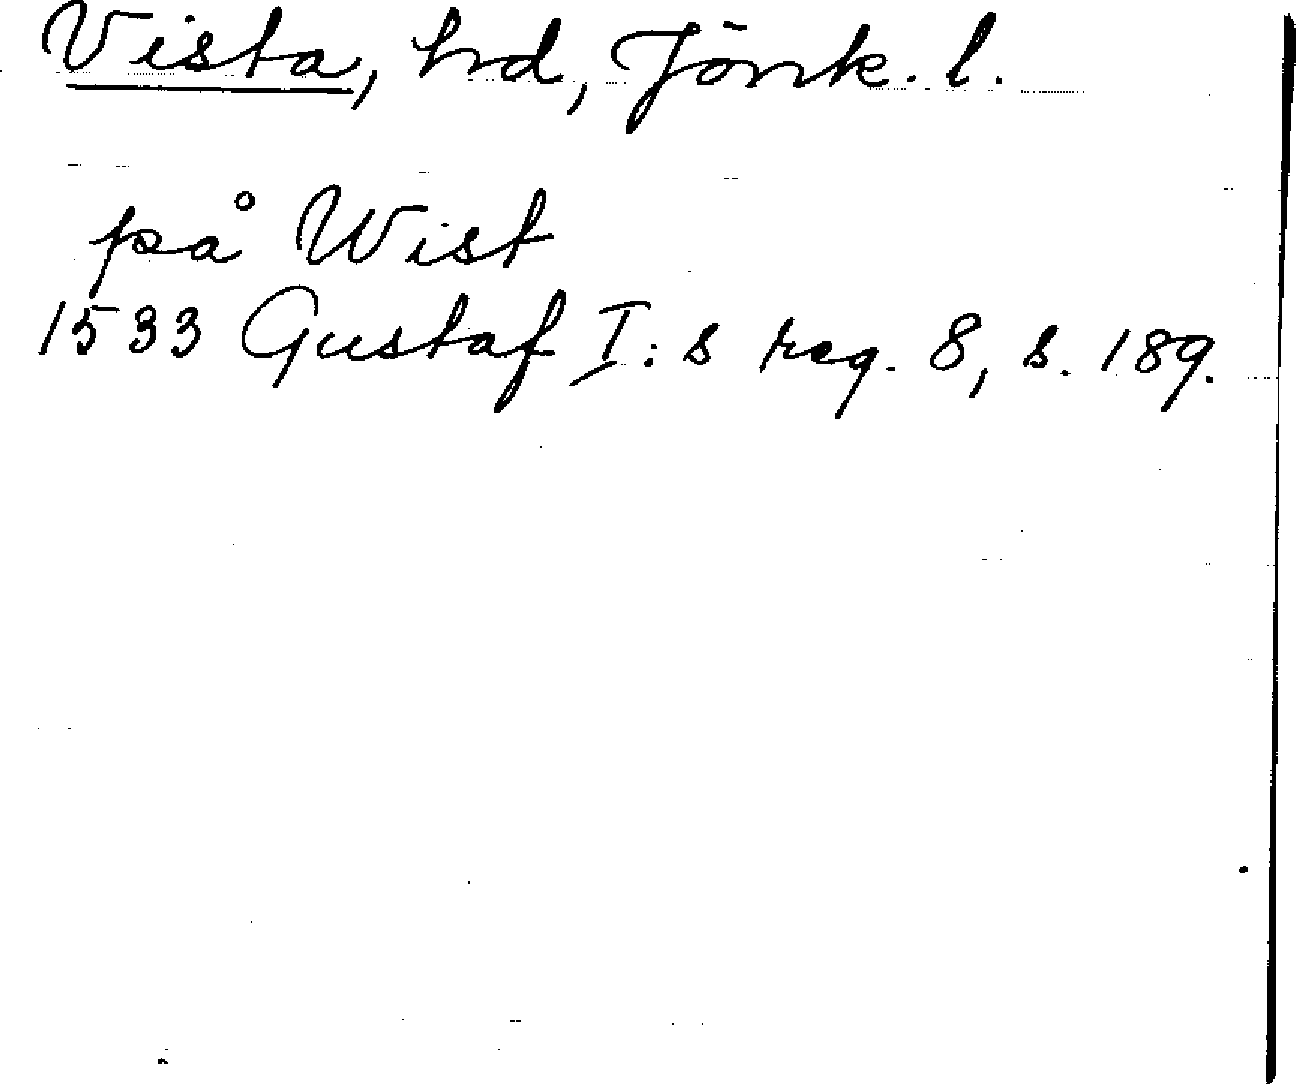 Vista, hd, Jönk. l.
på Wist
1533 Gustaf I:s reg. 8, s. 189.